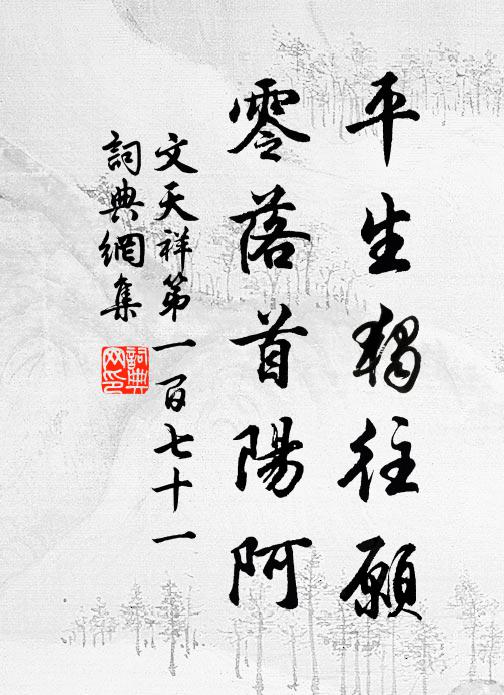 平生獨往願
零落首陽阿
文天祥第一百七十一
詞典網集
詞典網印